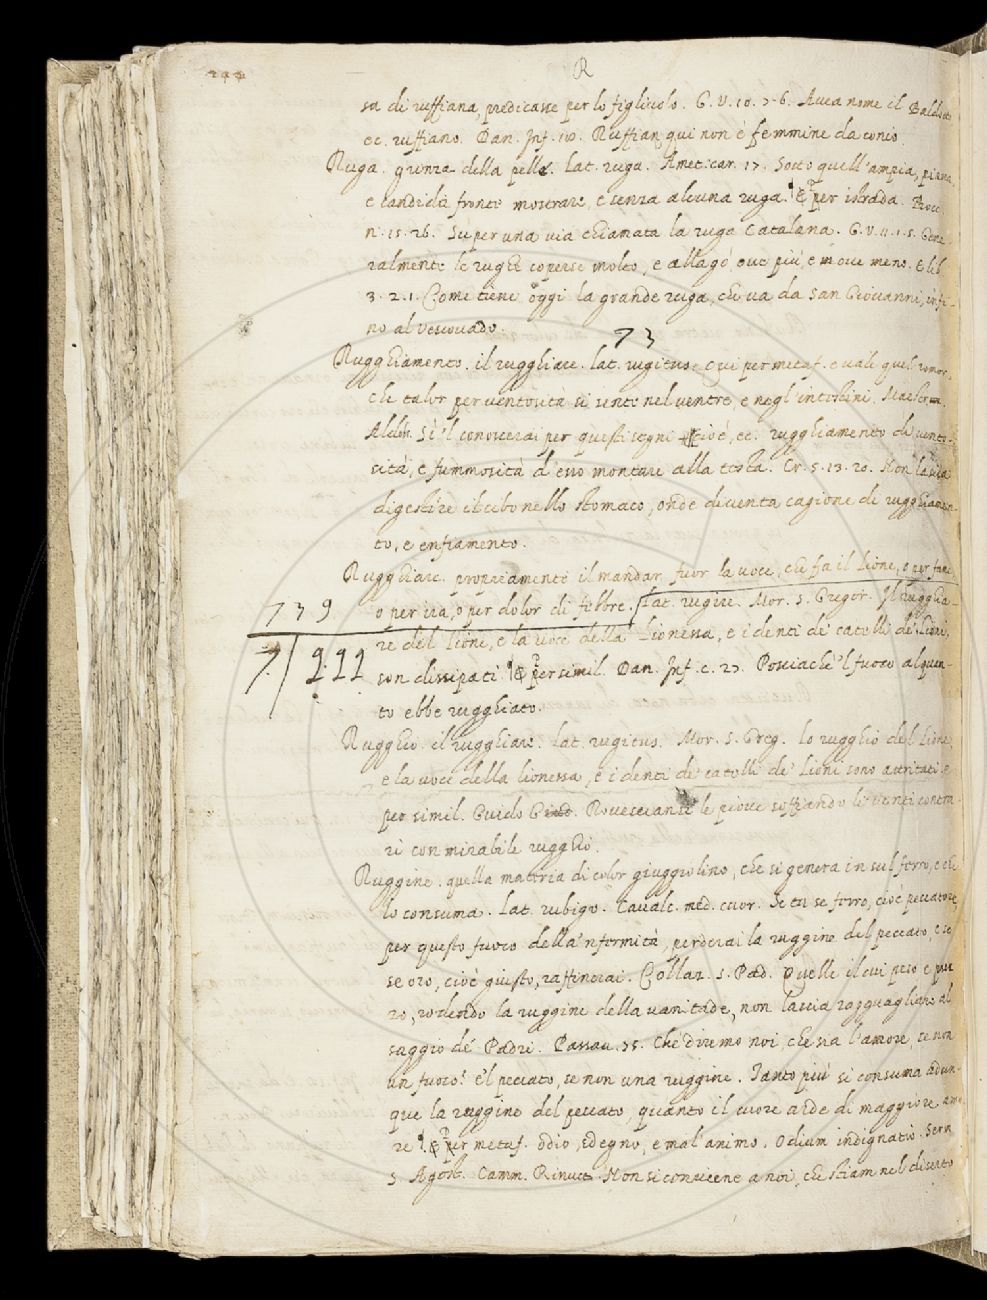 244
R
sa di ruffiana, predicasse per lo figliuolo. G. V. 10. 7. 6. Avea nome il
ec. ruffiano. Dan. Inf. 18. Ruffian, qui non è femmine da conio.
Ruga. grinza della pelle. Lat. ruga. Amet. car. 17. Sotto quell'ampia, piana,
e candida fronte mostrare, e senza alcuna ruga. § per istrada. Bocc.
n. 15. 26. Su per una via chiamata la ruga Catalana. G. V. 11. 1. 5. Gene-
ralmente le rughe coperse molto, e allagò ove più, e in ove meno. E lib.
3. 2. 1. Come tiene oggi la grande ruga, che va da San Giovanni, infi-
no al Vescovado.
73
Rugghiamento. il rugghiare. lat. rugitus. Qui per metaf. e vale quel romor,
che talor per ventosità si sente nel ventre, e negl'intestini. Maestr.
Aldobr. Sì 'l conoscerai per questi segni cioè, ec. rugghiamento di vento-
sità, e fummosità d'esso montare alla testa. Cr. 5. 13. 20. Non lascia
digestire il cibo nello stomaco, onde diventa cagione di rugghiamen-
to, e enfiamento.
Rugghiare. propriamente il mandar fuor la voce, che fa il Lione, o per fame,
o per ira, o per dolor di febbre. Lat. rugire. Mor. S. Gregor. Il rugghia-
739
re del Lione, e la voce della Lionessa, e i denti de' catelli de' Lioni,
7 999
son dissipati. § per simil. Dan. Inf. c. 27. Posciachè 'l fuoco alquan-
to ebbe rugghiato.
Rugghio. il rugghiare. Lat. rugitus. Mor. S. Greg. Lo rugghio del Lione
e la voce della lionessa, e i denti de' catelli de' Lioni sono attritati. E
per simil. Guido Giud. Rovesciansi le piove soffiando li venti contra-
ri con mirabile rugghio.
Ruggine. quella materia di color giuggiolino, che si genera in sul ferro, e che
lo consuma. Lat. rubigo. Cavalc. med. cuor. Se tu se ferro, cioè peccatore,
per questo fuoco della 'nfermità, perderai la ruggine del peccato, e se
se oro, cioè giusto, raffinerai. Collaz. S. Pad. Quelli il cui peso e puro
ro, rodendo la ruggine della vanitade, non lascia ragguagliare al
saggio de' Padri. Passav. 35. Che diremo noi, che sia l'amore, se non
un fuoco? e 'l peccato, se non una ruggine. Tanto più si consuma adun-
que la ruggine del peccato, quanto il cuore arde di maggiore amo-
re. § per metaf. odio, sdegno, e mal'animo. Odium indignatio. Serm.
S. Agost. Camm. Rinucc. Non si conviene a noi, che stiam nel diserto